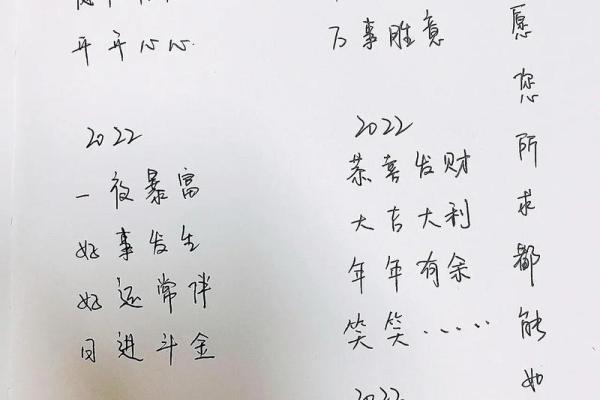 平平心心
2022
一夜暴富
好事发生
好运常伴
日进斗金
万事胜意
2022
恭喜发财
大吉大利
年年有余
笑笑·····
2022
愿您所求都能如